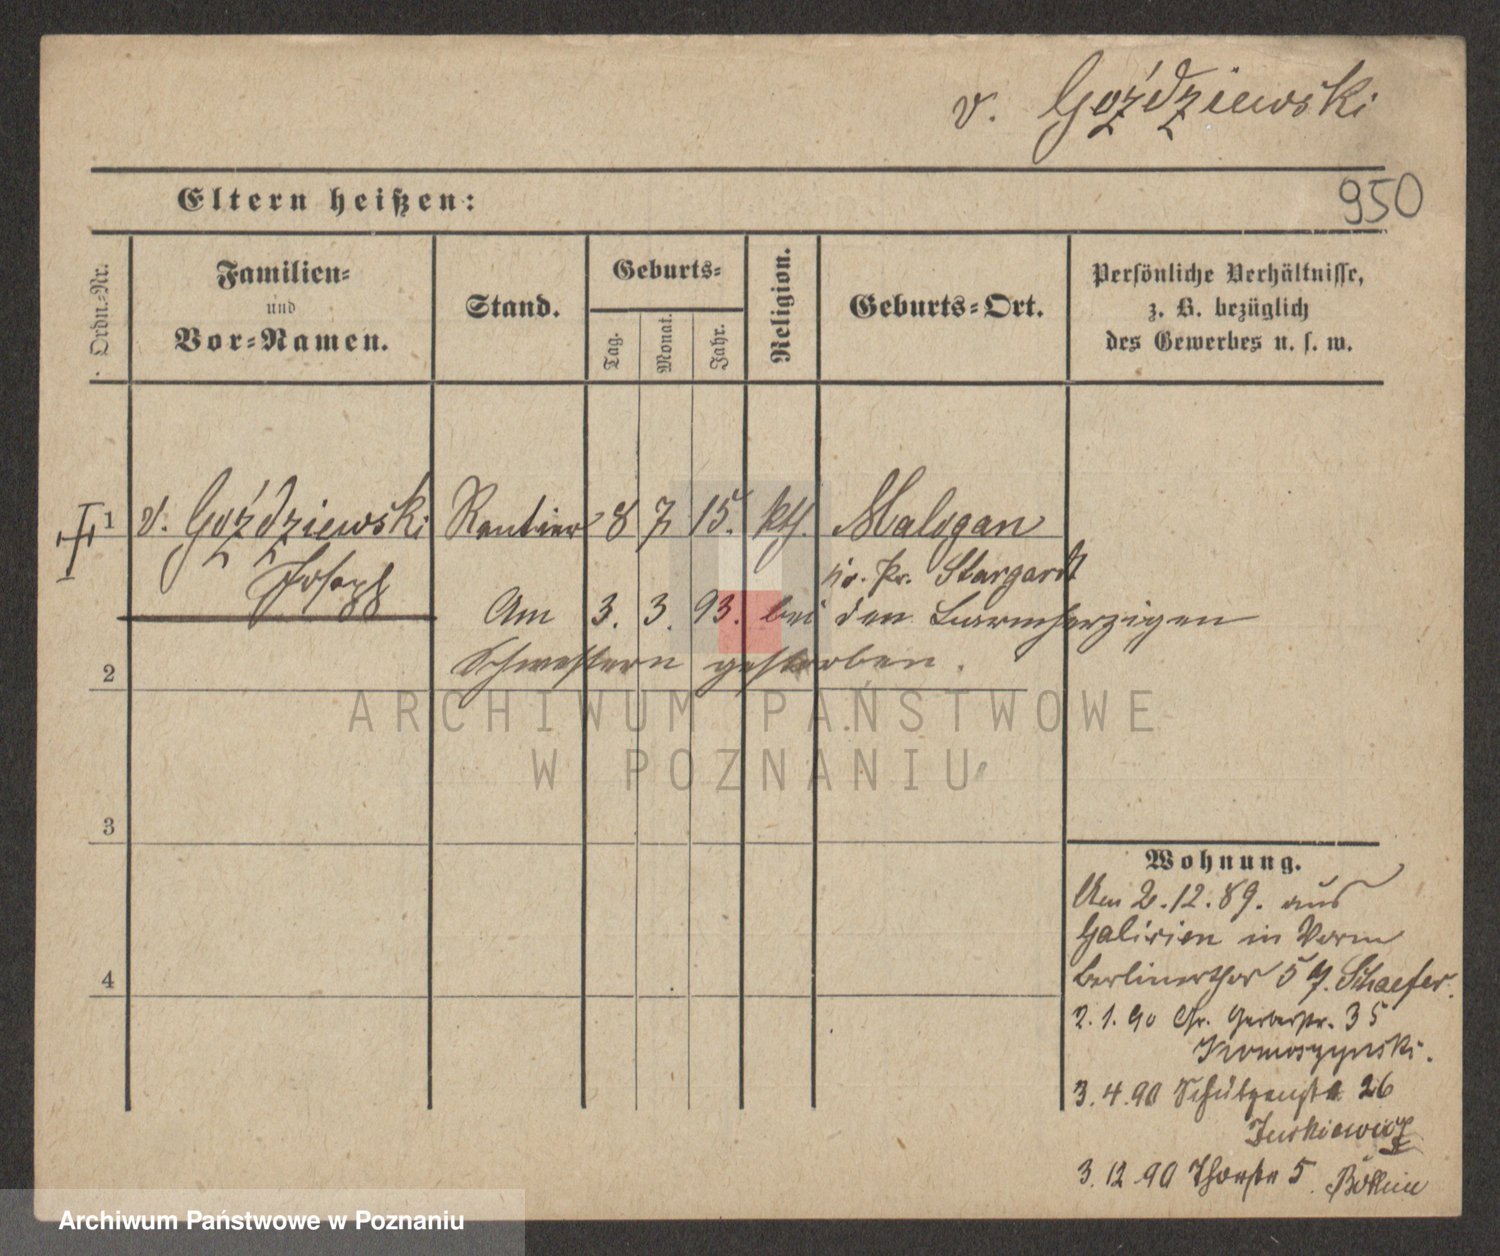 v. Goździewski
950
Eltern heißen:
Ordn.-Nr.
Familien-
und
Vor-Namen.
Stand.
Geburts-
Tag.
Monat.
Jahr.
Religion.
Geburts-Ort.
Persönliche Verhältnisse,
z. B. bezüglich
des Gewerbes u. s. w.
1 v. Goździewski Rentier 8 7 15. kth. Malogan
Joseph Kr. Pr. Stargardt
Am 3. 3. 93. bei den barmherzigen
Schwestern gestorben.
2
3
4
ARCHIWUM PAŃSTWOWE
W POZNANIU
Wohnung.
Am 2.12.89. aus
Galizien in Vorm
Berlinerthor 5 Schaefer.
2.1.90 Gr. Gerberstr. 35
3.4.90 Schützenstr 26
Jurkiewicz
3.12.90 5.
Archiwum Państwowe w Poznaniu